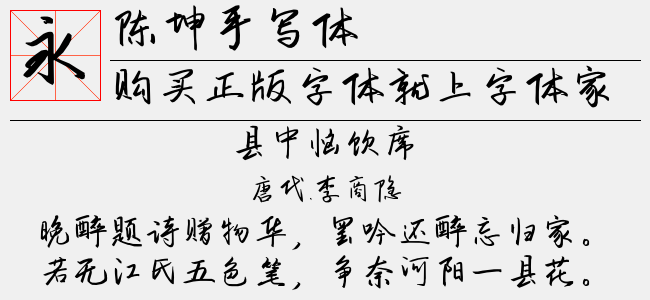 永
陈坤手写体
购买正版字体就上字体家
县中恼饮席
唐代.李商隐
晚醉题诗赠物华，罢吟还醉忘归家。
若无江氏五色笔，争奈河阳一县花。